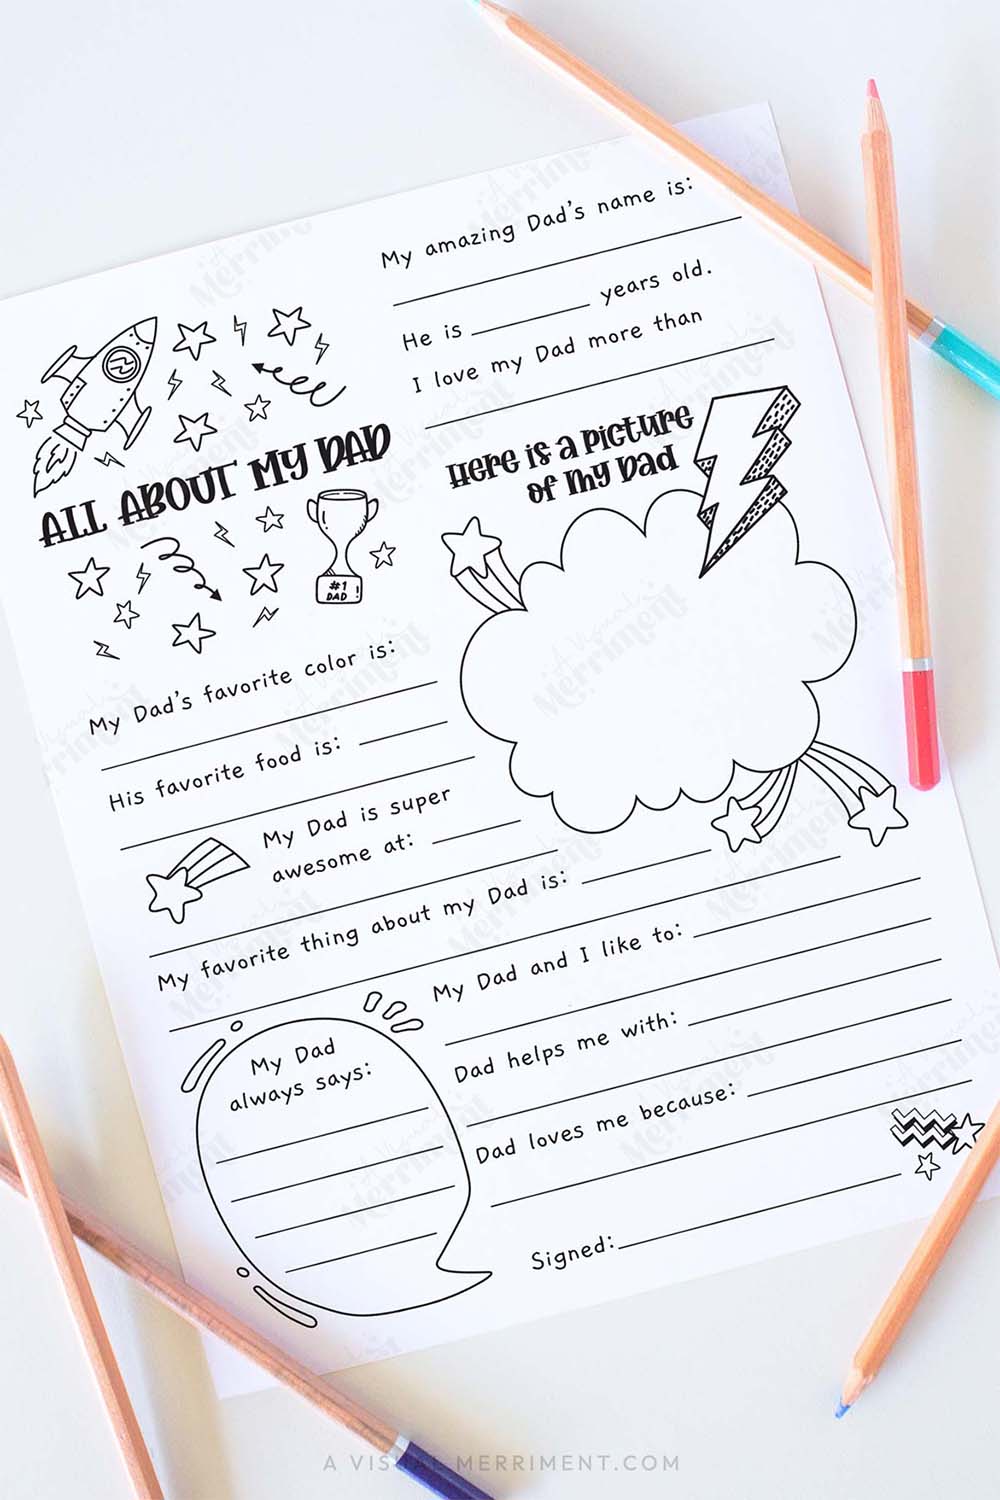 My amazing Dad's name is:
He is
years old.
I love my Dad more than
ALL ABOUT MY DAD
#1
DAD
!
Here is a picture
of my Dad
My Dad's favorite color is:
His favorite food is:
My Dad is super
awesome at:
My favorite thing about my Dad is:
My Dad and I like to:
Dad helps me with:
Dad loves me because:
My Dad
always says:
Signed:
A VISUAL MERRIMENT.COM